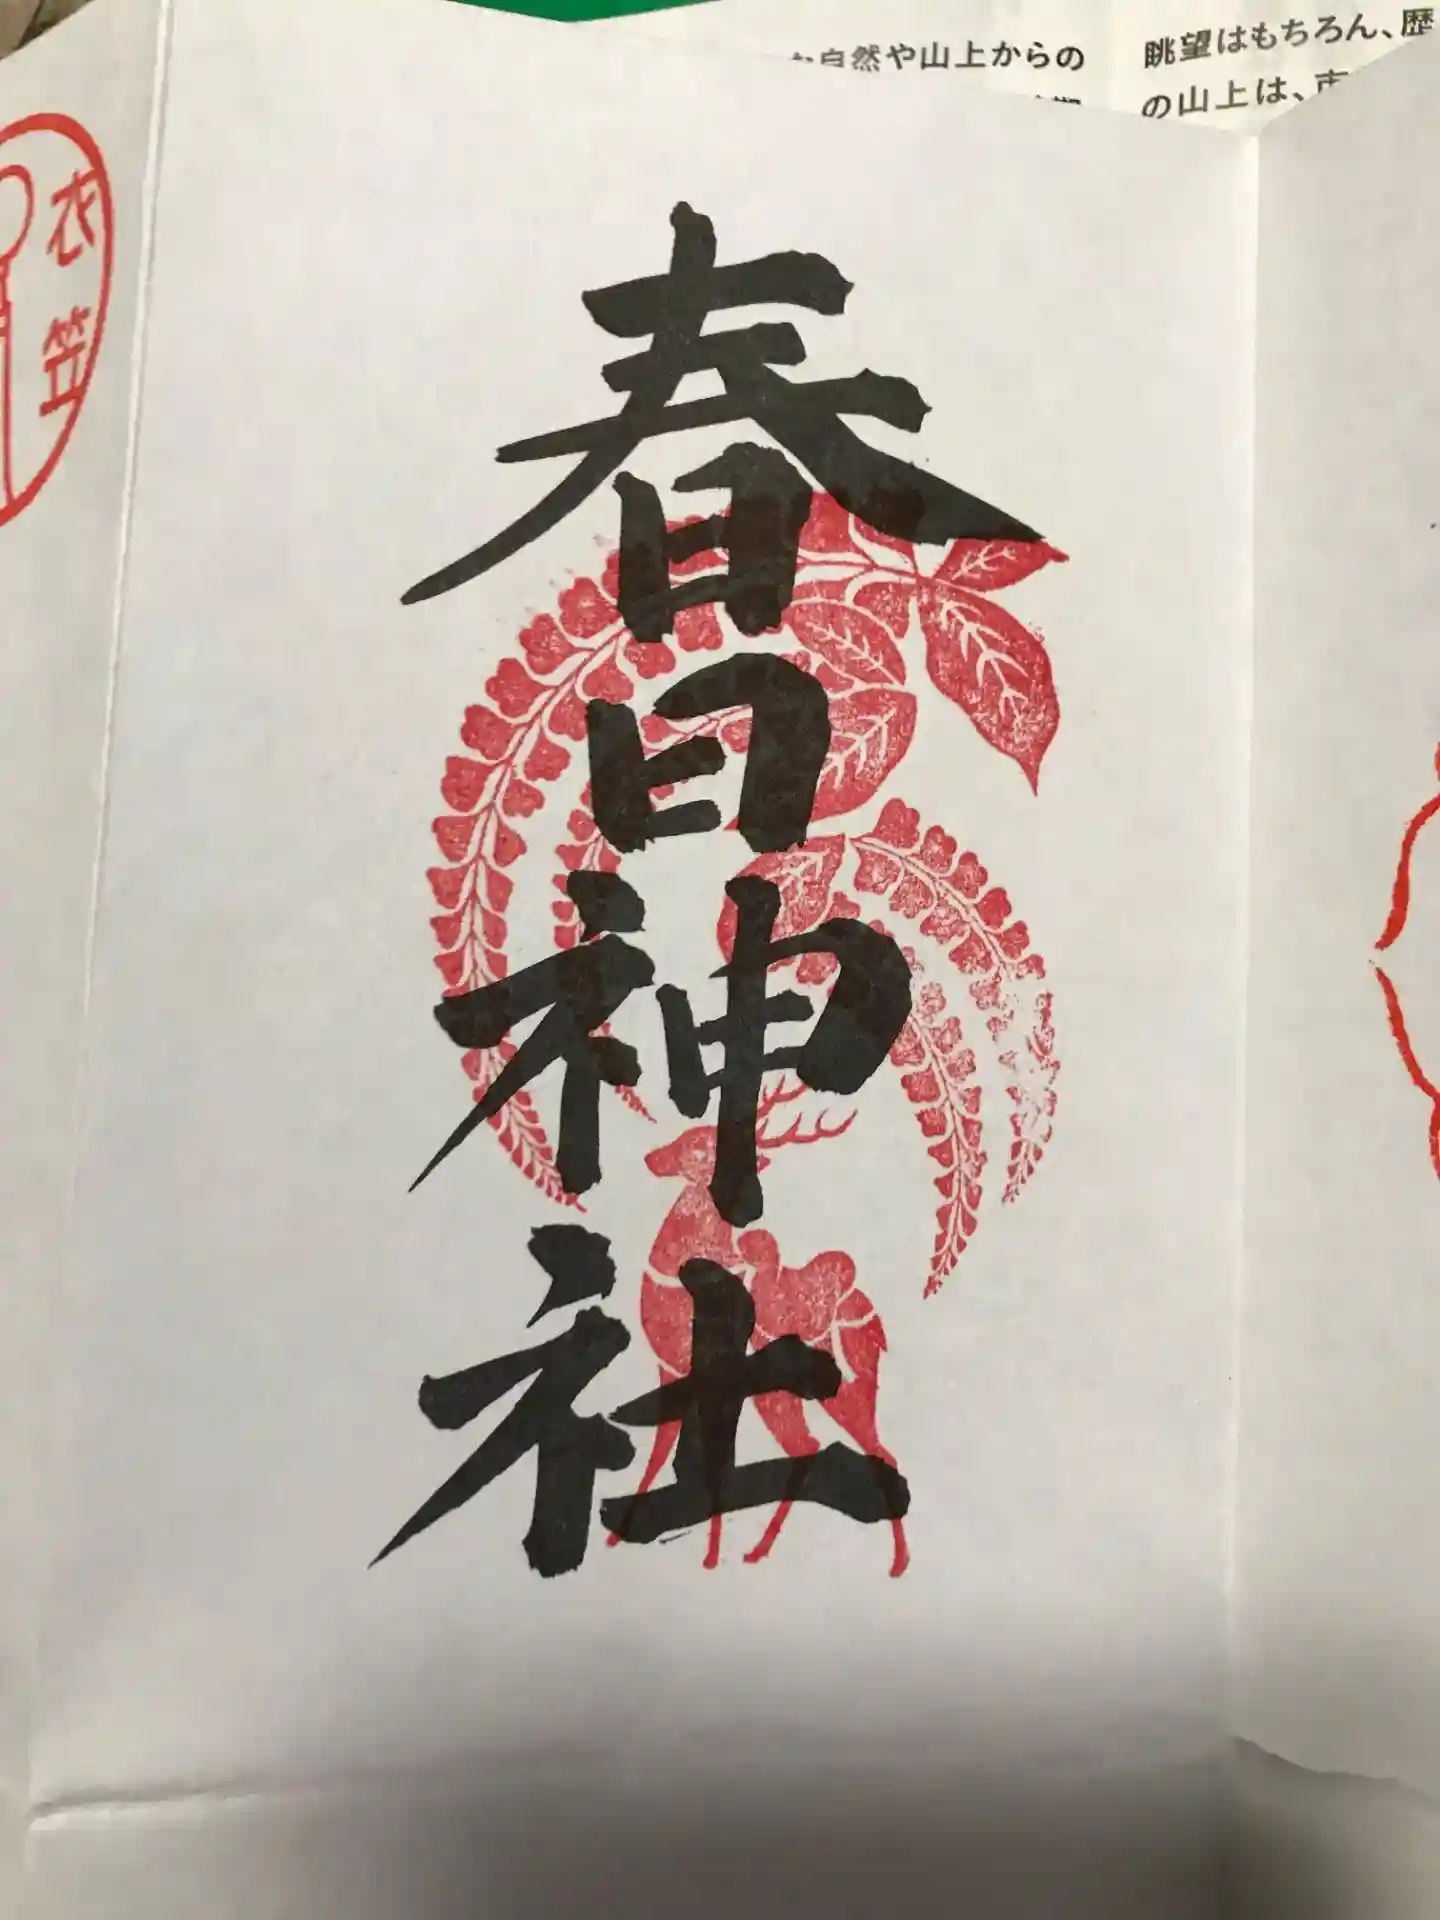 自然や山上からの
眺望はもちろん、歴
の山上は、市
衣笠
春日神社